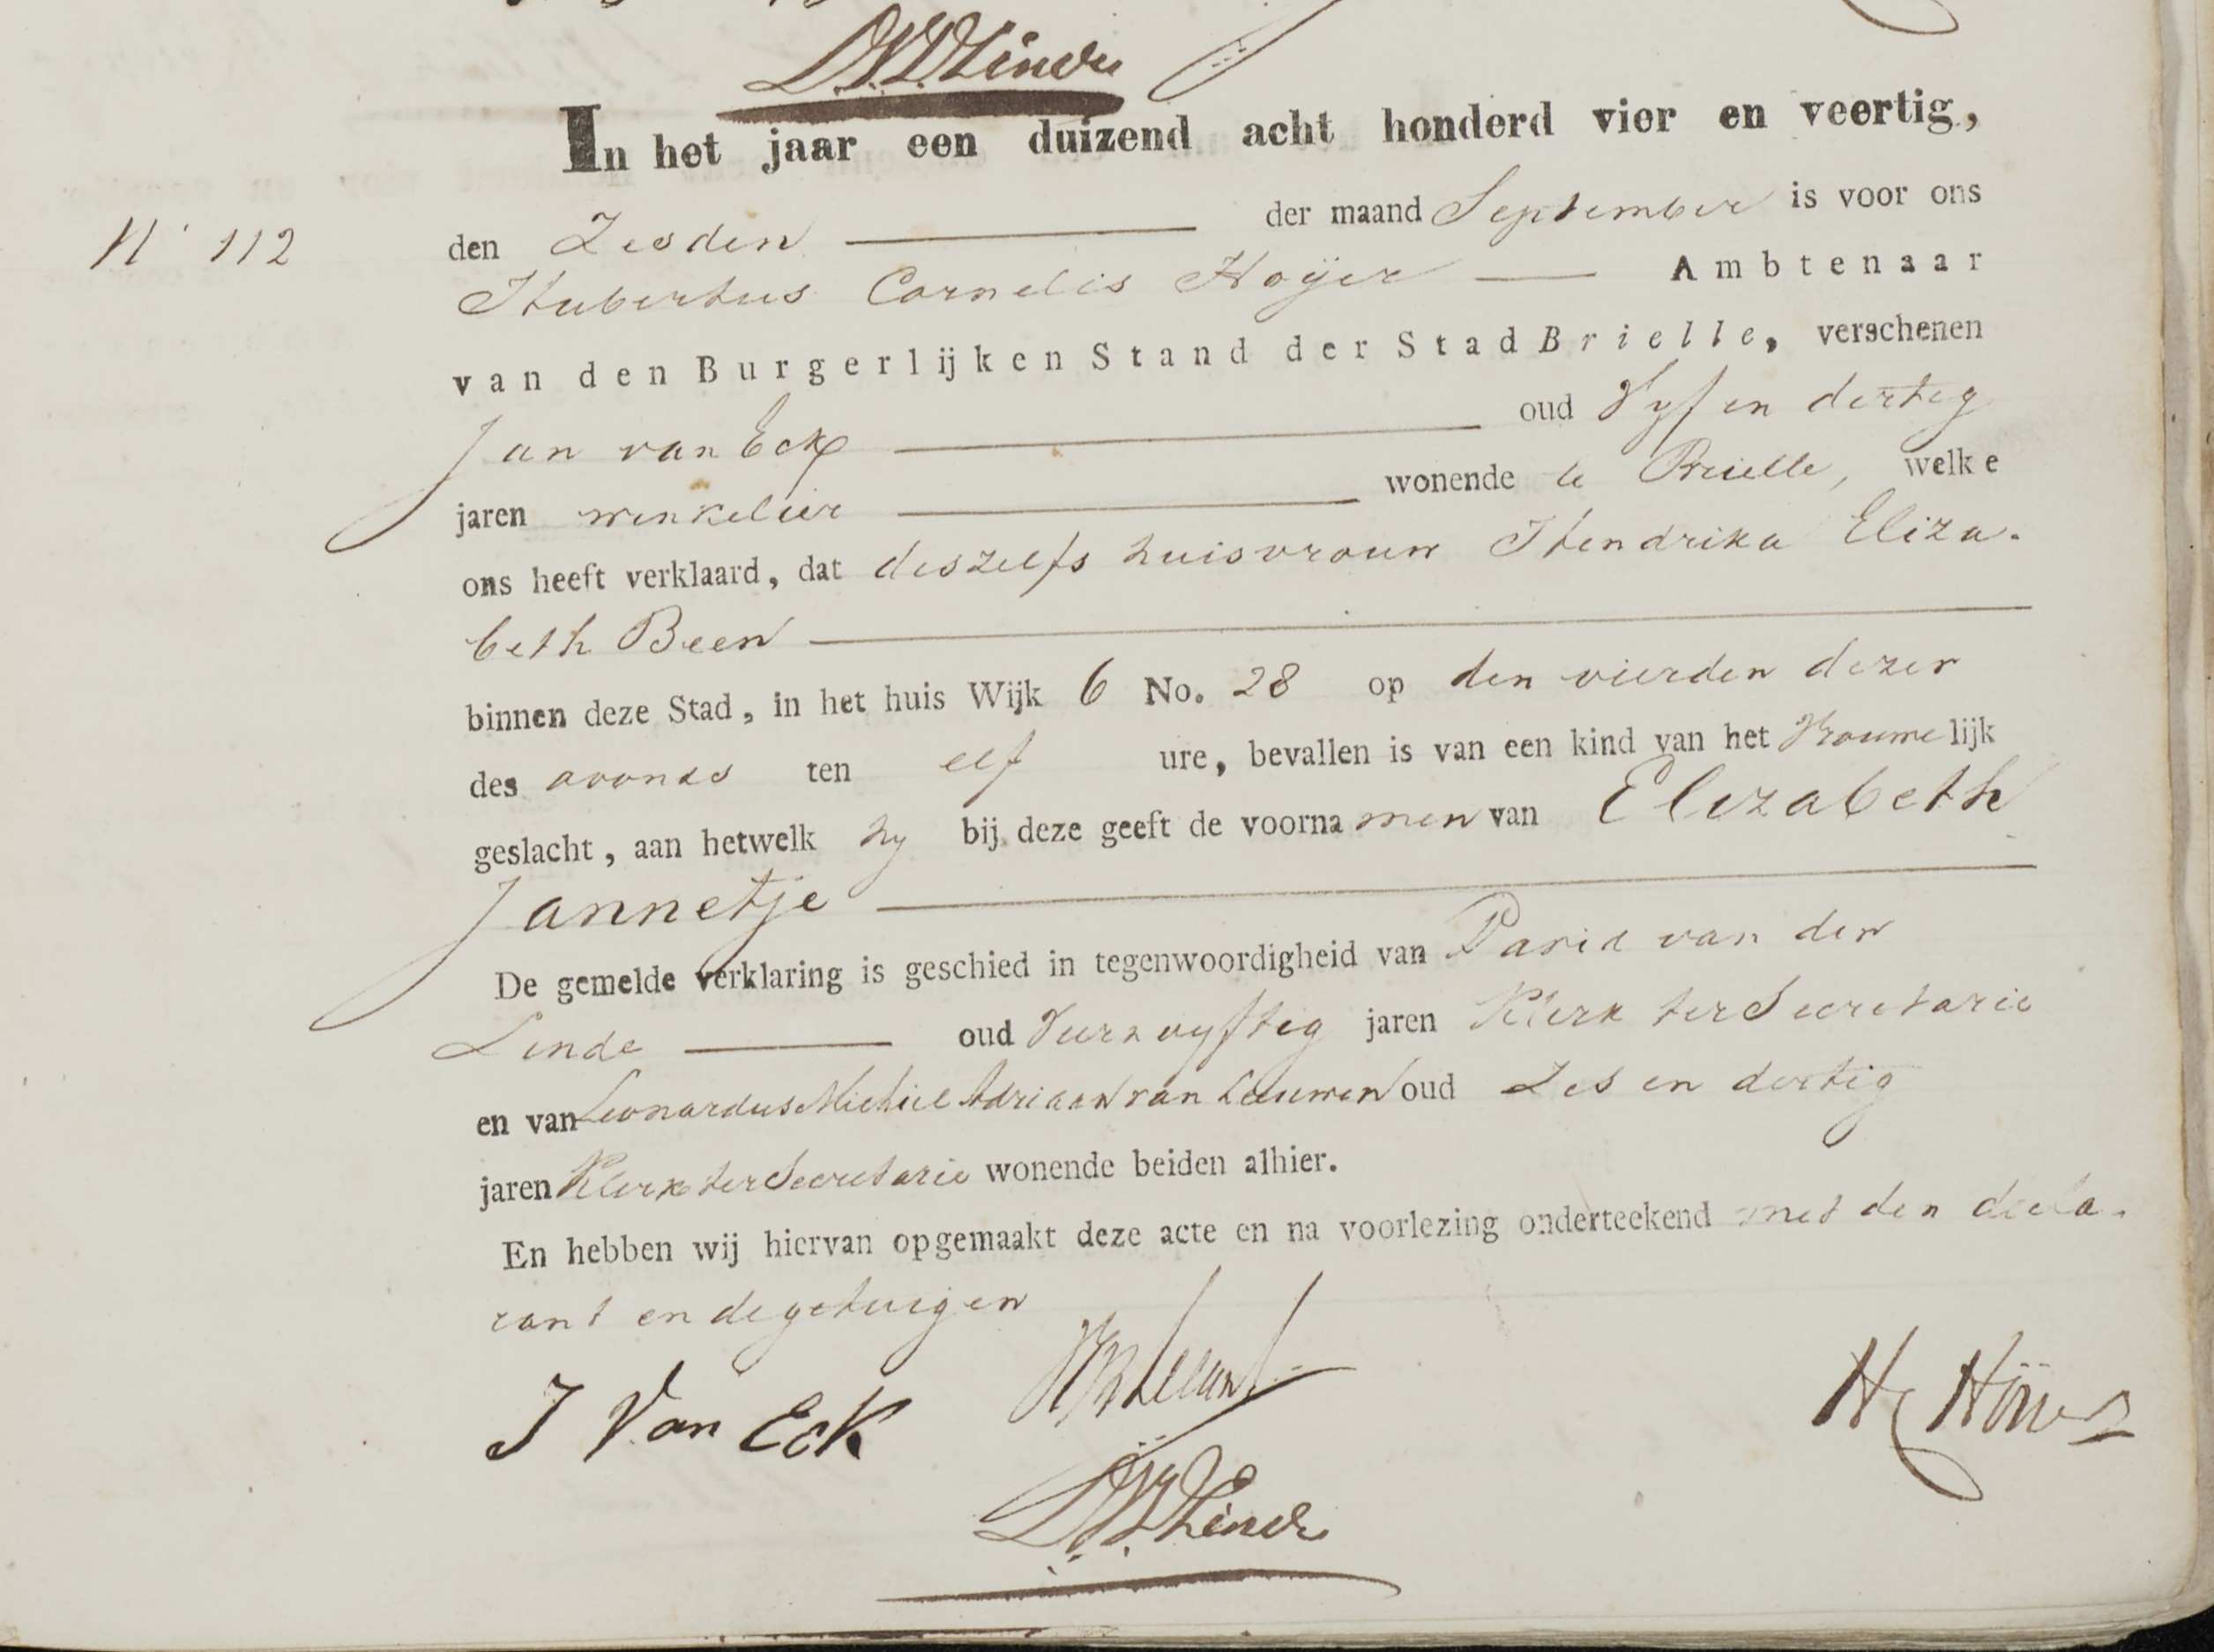 D.V.D. Linde
In het jaar een duizend acht honderd vier en veertig,
N° 112
den Zesden der maand September is voor ons
Hubertus Cornelis Hoÿer Ambtenaar
van den Burgerlijken Stand der Stad Brielle, verschenen
Jan van Eck oud Vyf en dertig
jaren winkelier wonende te Brielle, welke
ons heeft verklaard, dat deszelfs huisvrouw Hendrika Eliza-
beth Been
binnen deze Stad, in het huis Wijk 6 No. 28 op den vierden dezer
des avonds ten elf ure, bevallen is van een kind van het Vrouwelijk
geslacht, aan hetwelk hy bij deze geeft de voornamen van Elizabeth
Jannetje
De gemelde verklaring is geschied in tegenwoordigheid van David van der
Linde oud jaren Klerk ter Secretarie
en van Leonardus Michiel Adriaan van Leeuwen oud Zes en dertig
jaren Klerk ter Secretarie wonende beiden alhier.
En hebben wij hiervan opgemaakt deze acte en na voorlezing onderteekend met den decla-
rant en de getuigen
J Van Eck
H C Hoÿer
D.V.D. Linde